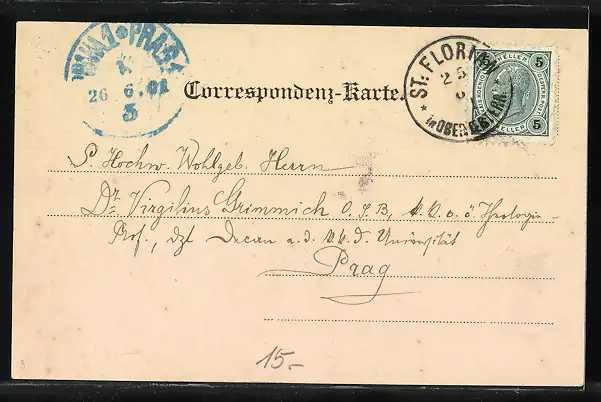 PRAHA 1 * PRAG 1
26 6.01
5
Correspondenz-Karte.
ST. FLORIAN
25
in OBERÖSTERR.
5 HELLER 5
5 HELLER 5
S. Hochw. Wohlgeb. Herrn
Dr. Virgilius Grimmich O.S.B., k.k. o.ö. Theologie-
Prof., dzt Decan a.d. k.k.d. Universität
Prag
15.-